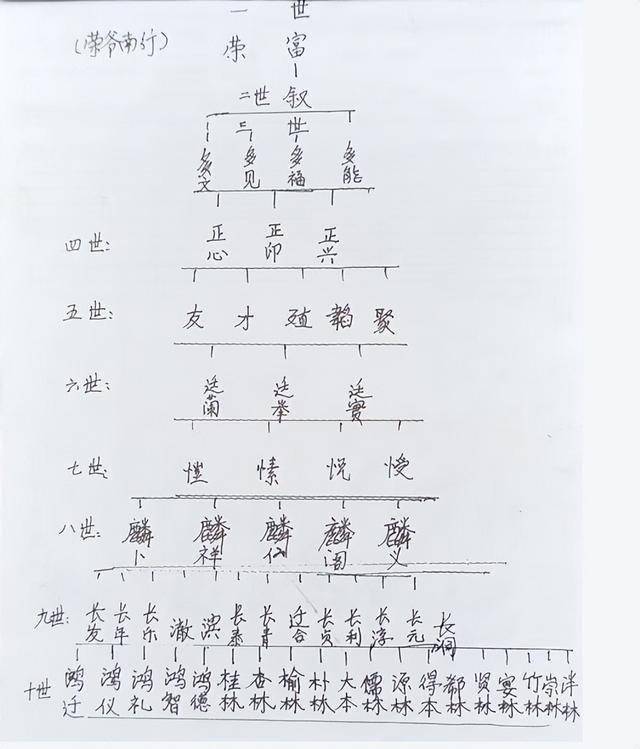 一 世
(荣爷南行) 荣 富
二世 叙
三 世
多文 多见 多福 多能
四世: 正心 正印 正兴
五世: 友 才 殖 韬 聚
六世: 廷兰 廷举 廷宾
七世: 愫 悦
八世: 麟卜 麟祥 麟仪 麟阁 麟义
九世: 长发 长年 长乐 澈 滨 长泰 长青 迁合 长贞 长利 长淳 长元 长润
十世 鸿迁 鸿仪 鸿礼 鸿智 鸿德 桂林 杏林 榆林 朴林 大本 儒林 源林 得本 郗林 贤林 宴林 竹林 崇林 泮林